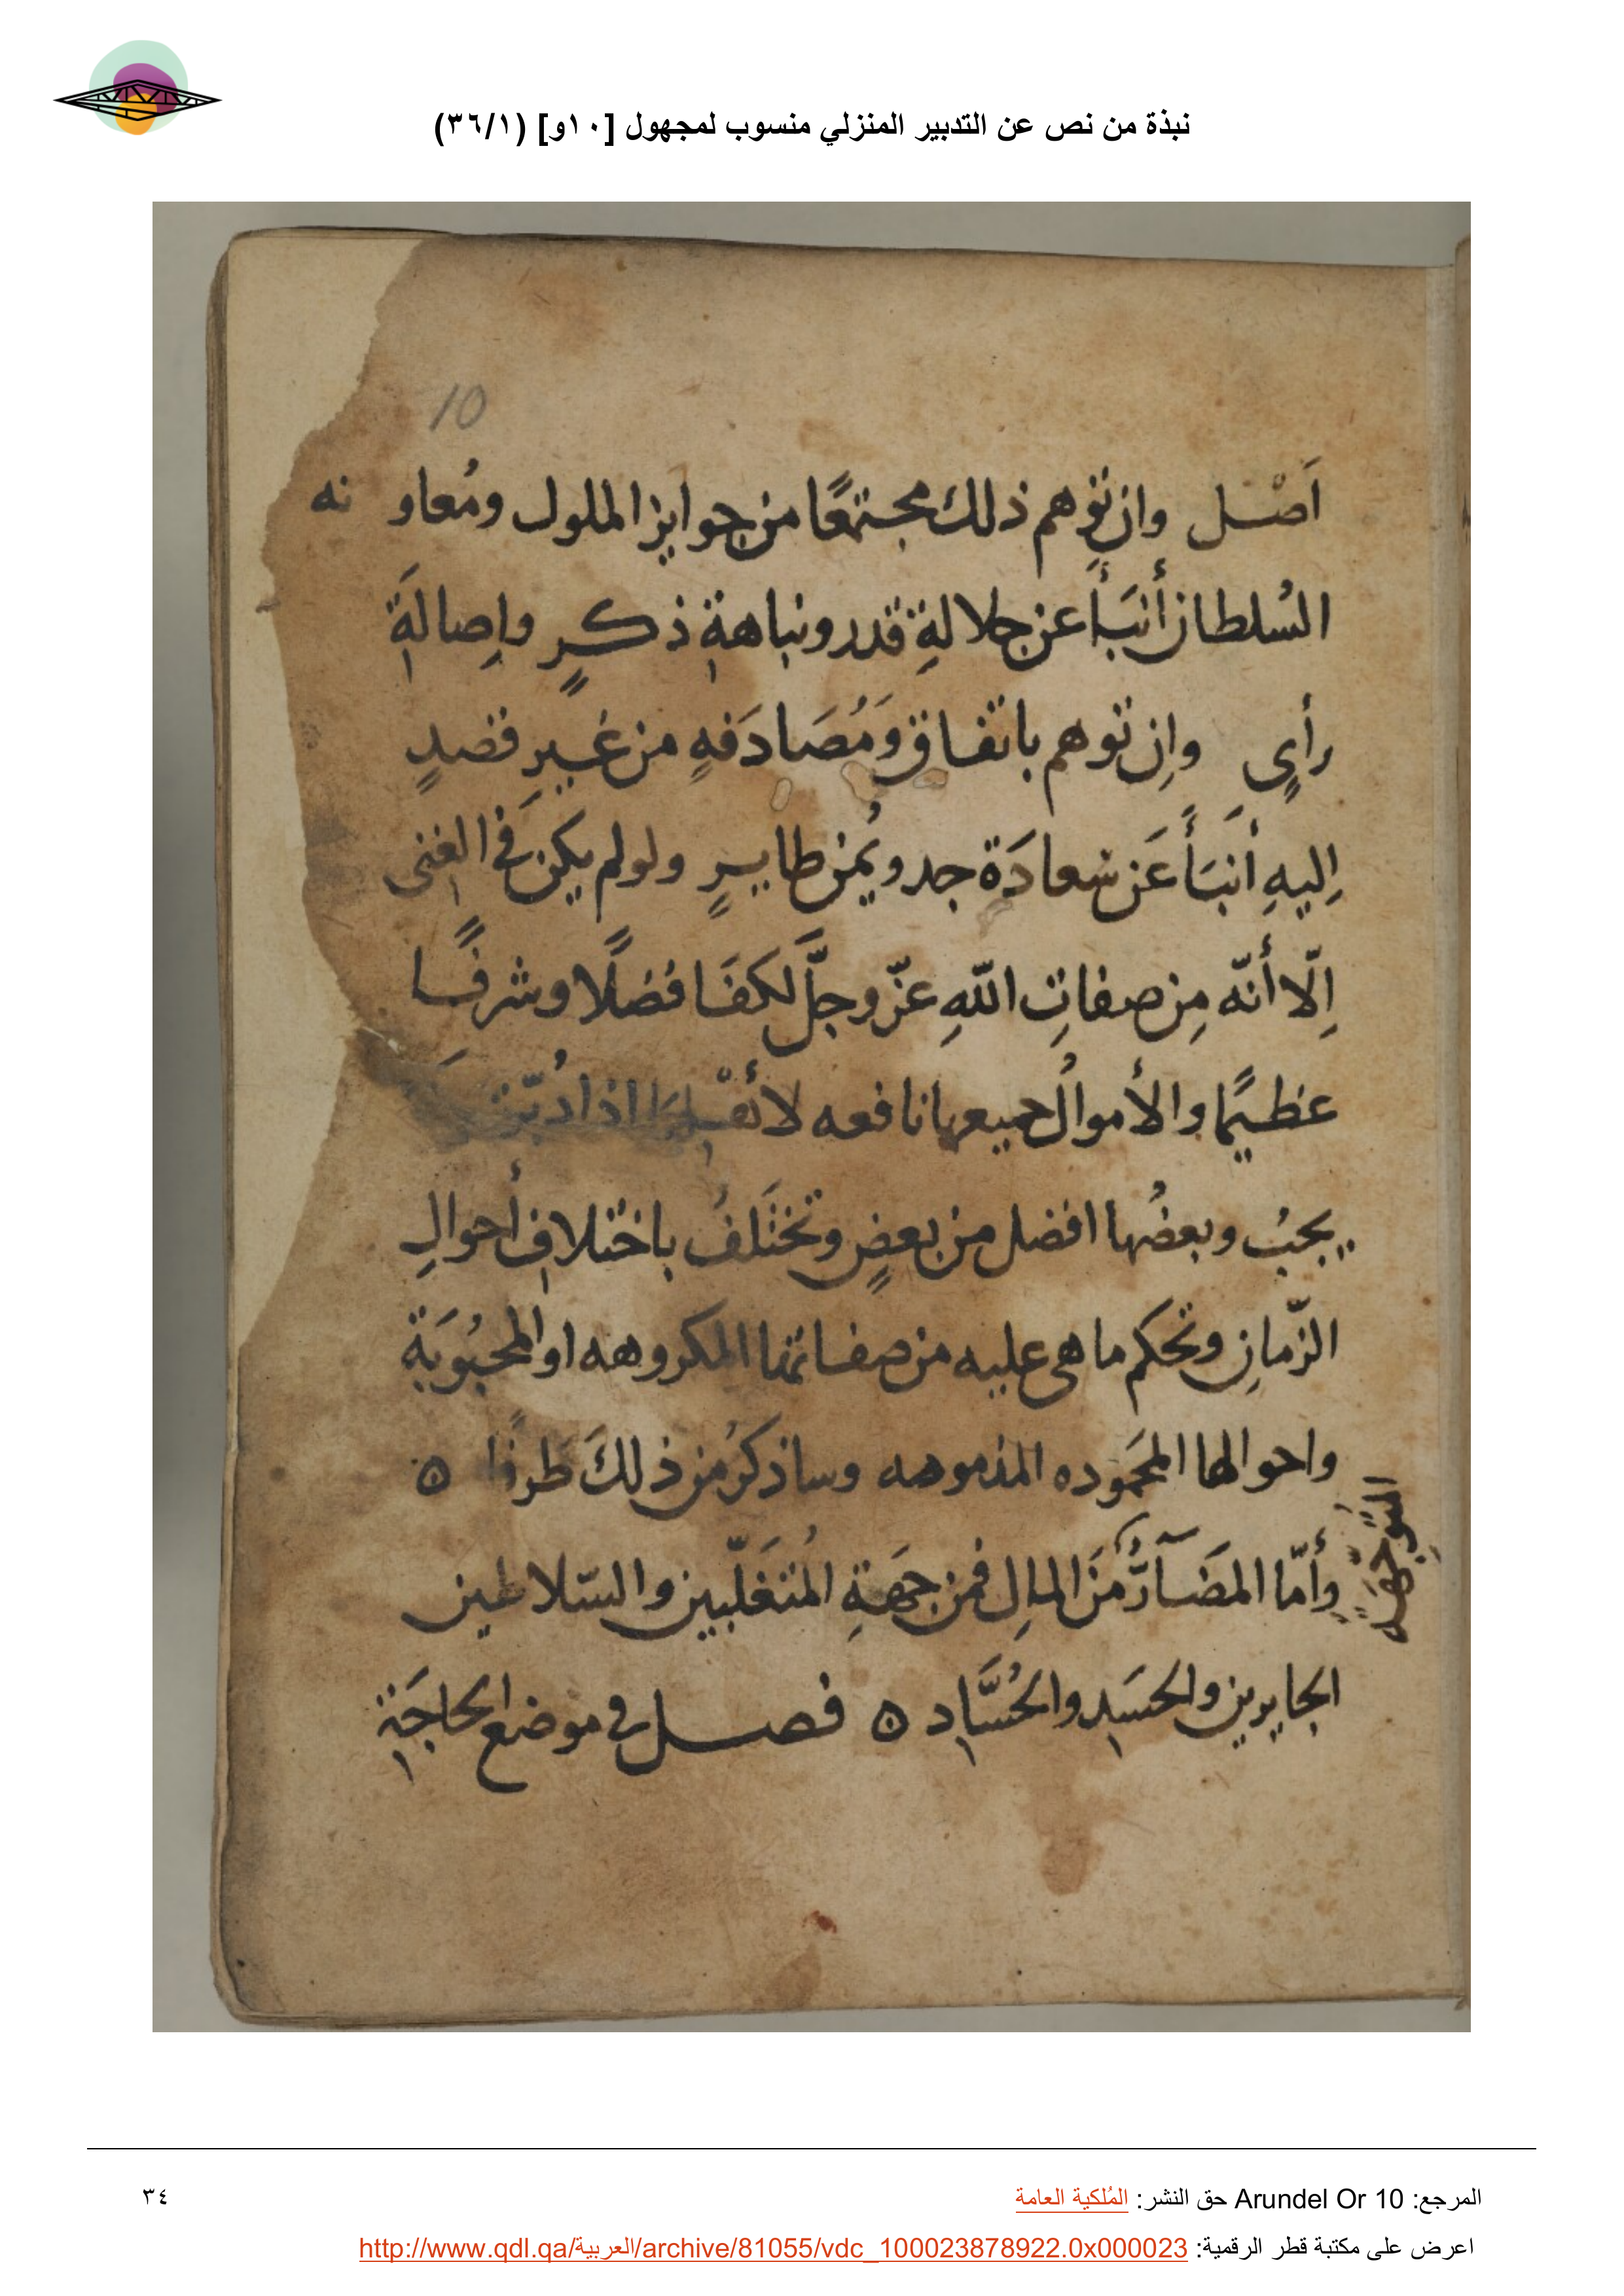 نبذة من نص عن التدبير المنزلي منسوب لمجهول [١٠و] (٣٦/١)
10
اَصْل وان توهم ذلك مجتمعًا من جوايز الملوك ومُعاو نه
السُلطان أنبَأ عن جلالةِ قدر ونباهةِ ذكرٍ واِصالةِ
رأيٍ واِن توهم باتفاق وَمُصَادَفهٍ من غيرِ قصدٍ
اِليهِ أنبَأَ عَن سَعادَة جد ويُمن طايرٍ ولو لم يكن في الغنى
اِلّا أنّه مِن صفاتِ اللّهِ عزّ وجلَّ لكفَا فضلًا وشرفًا
عظيمًا والأموالُ جميعها نافعه لأهلها اذا دُبّرت
يجبُ وبعضُها افضل من بعضٍ وتختَلفُ باختلافِ أحوالِ
الزّمانِ وتحكم ما هى عليه من صفاتها المكروهه او المحبُوبَة
واحوالها المحَموده المذمومه وساذكرُ من ذلكَ طرفًا ٥
وأمّا المضَآرُّ مَن المالِ فمن جهَةِ المُتغَلّبين والسّلاطين
الجايرين والحسَدِ والحُسَّادِ ٥ فصل في موضع الحاجَةِ
المرجع: Arundel Or 10 حق النشر: المُلكية العامة
٣٤
اعرض على مكتبة قطر الرقمية: http://www.qdl.qa/العربية/archive/81055/vdc_100023878922.0x000023